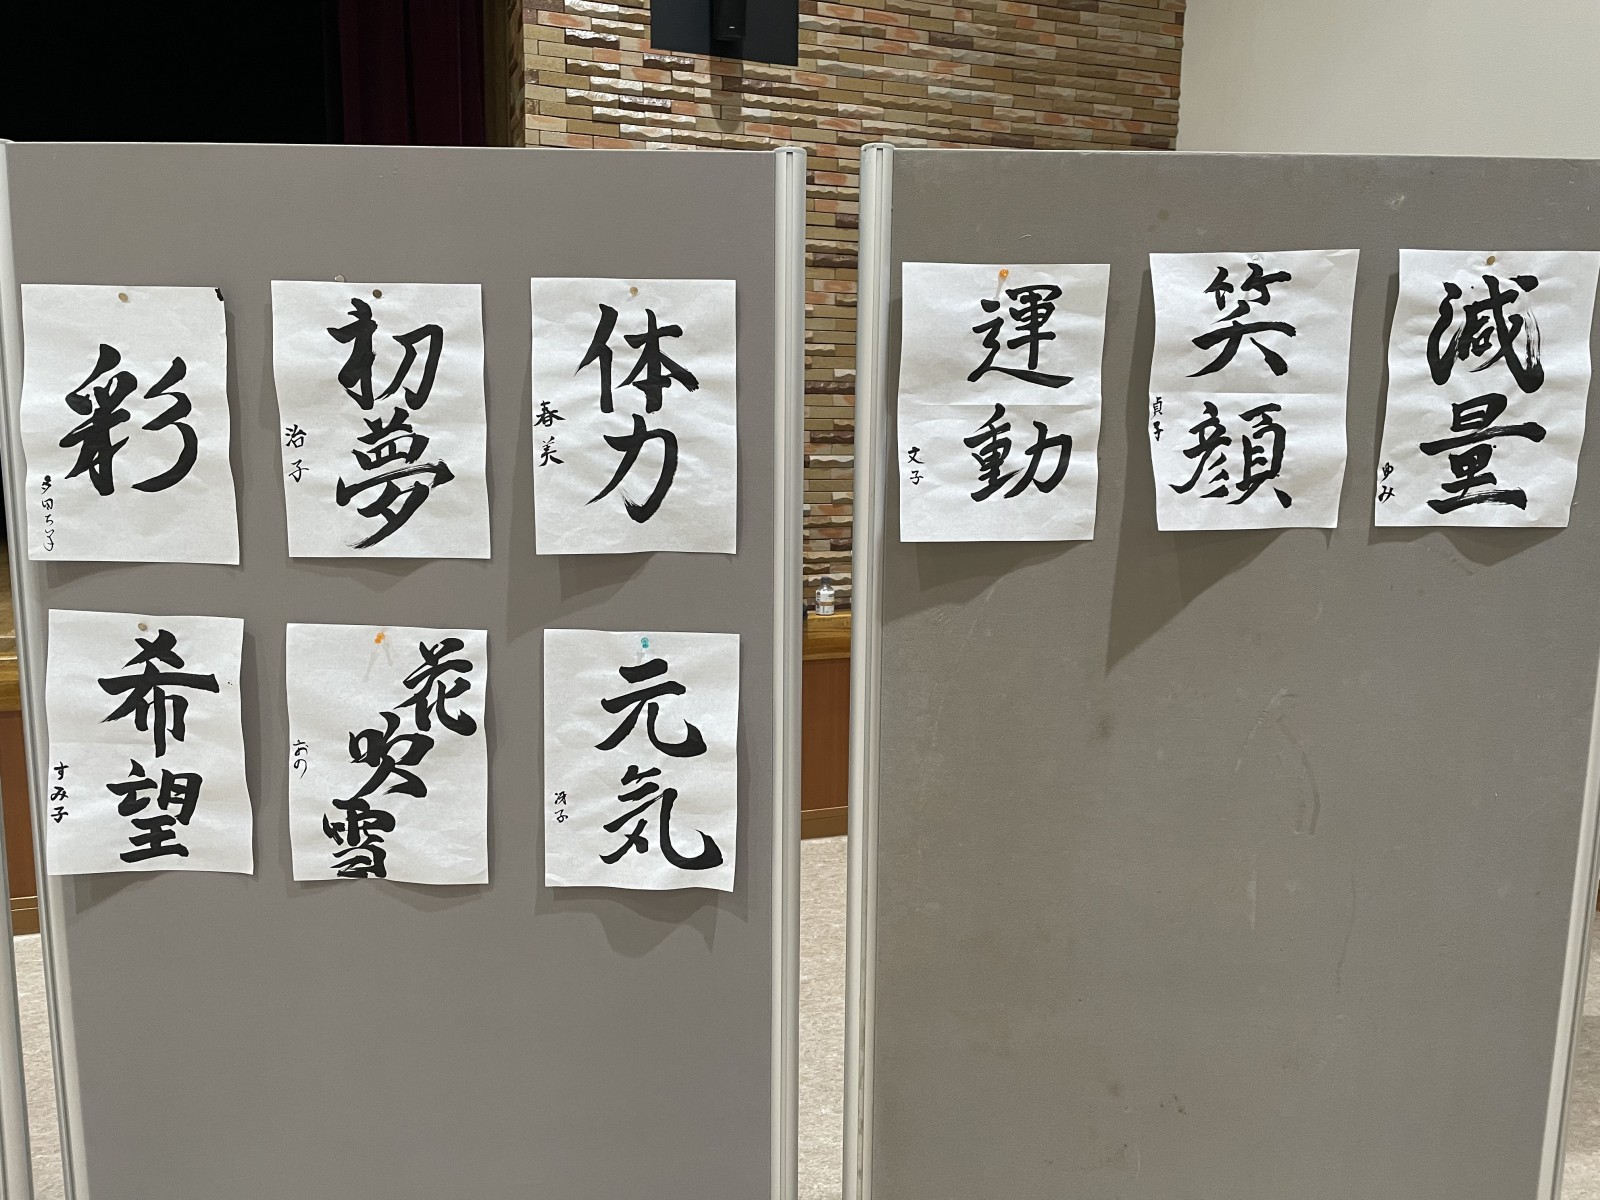 彩
初夢
治子
体力
春美
希望
すみ子
花吹雪
おの
元気
冴子
運動
文子
笑顔
貞子
減量
ゆみ